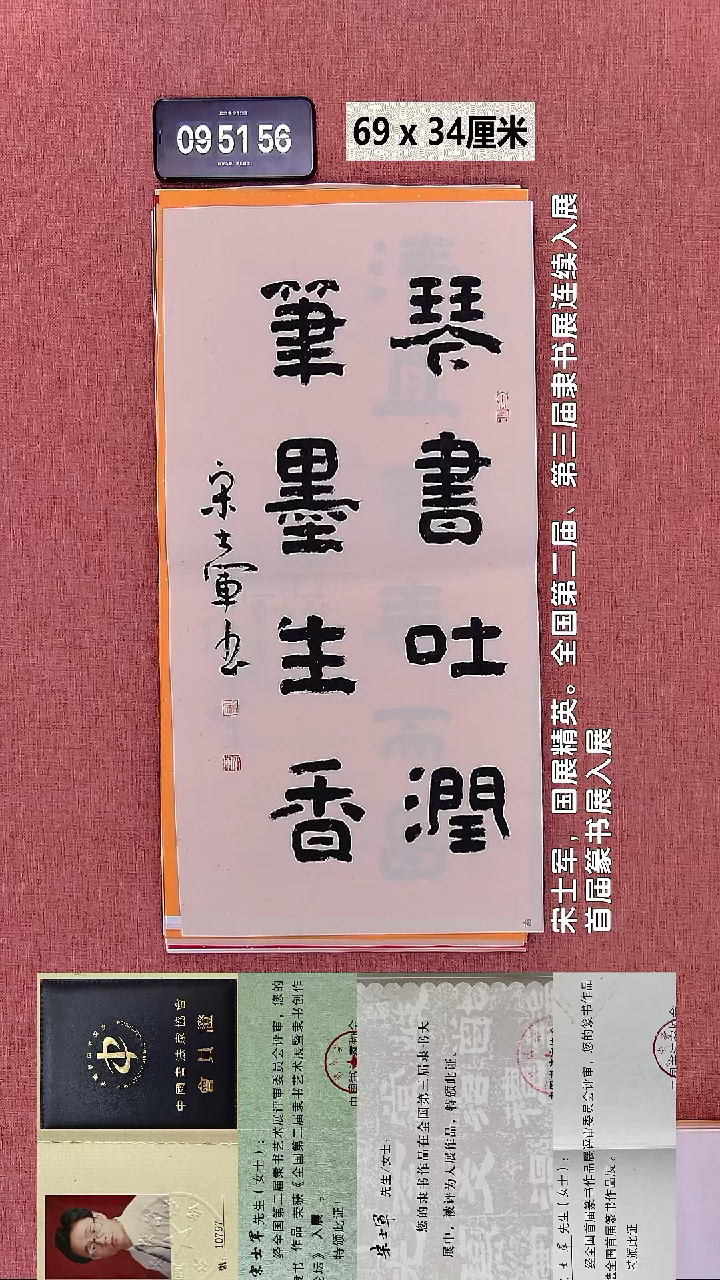 09 51 56
69 x 34厘米
琴書吐潤
筆墨生香
宋士軍书
宋士军，国展精英。全国第二届、第三届隶书展连续入展
首届篆书展入展
中國書法家協會
會員證
宋士军 先生（女士）：
经全国第二届隶书艺术展评审委员会评审，您的
书》作品 荣获《全国第二届隶书艺术展暨隶书创作
论坛》入展。
特颁此证！
宋士军 先生/女士：
您的隶书作品在全国第三届隶书大
展中，被评为入展作品，特颁此证。
先生（女士）：
经全国首届篆书作品展评审委员会评审，您的篆书作品
全国首届篆书作品展。
颁此证